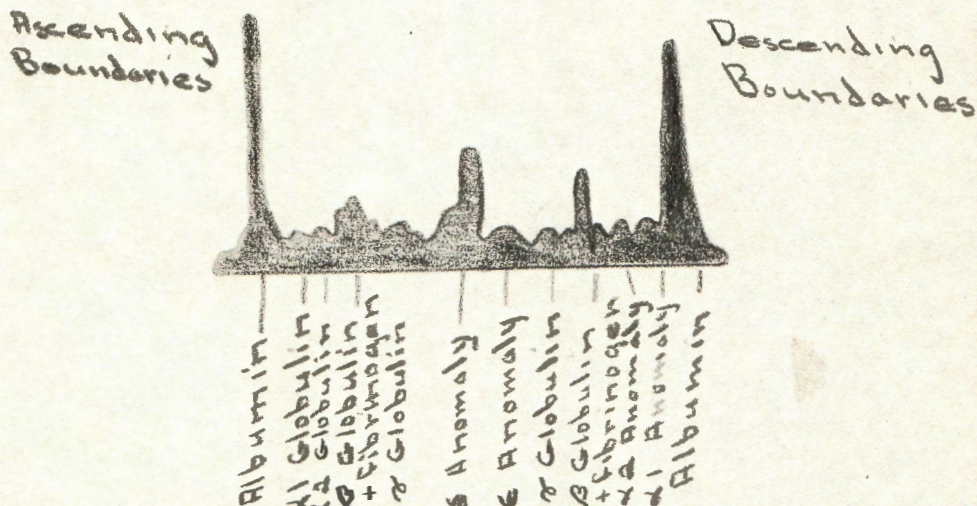 Ascending
Boundaries
Descending
Boundaries
Albumin
α1 Globulin
α2 Globulin
β Globulin
+ Fibrinogen
γ Globulin
δ Anomaly
ε Anomaly
γ Globulin
β Globulin
+ Fibrinogen
α2 Anomaly
α1 Anomaly
Albumin